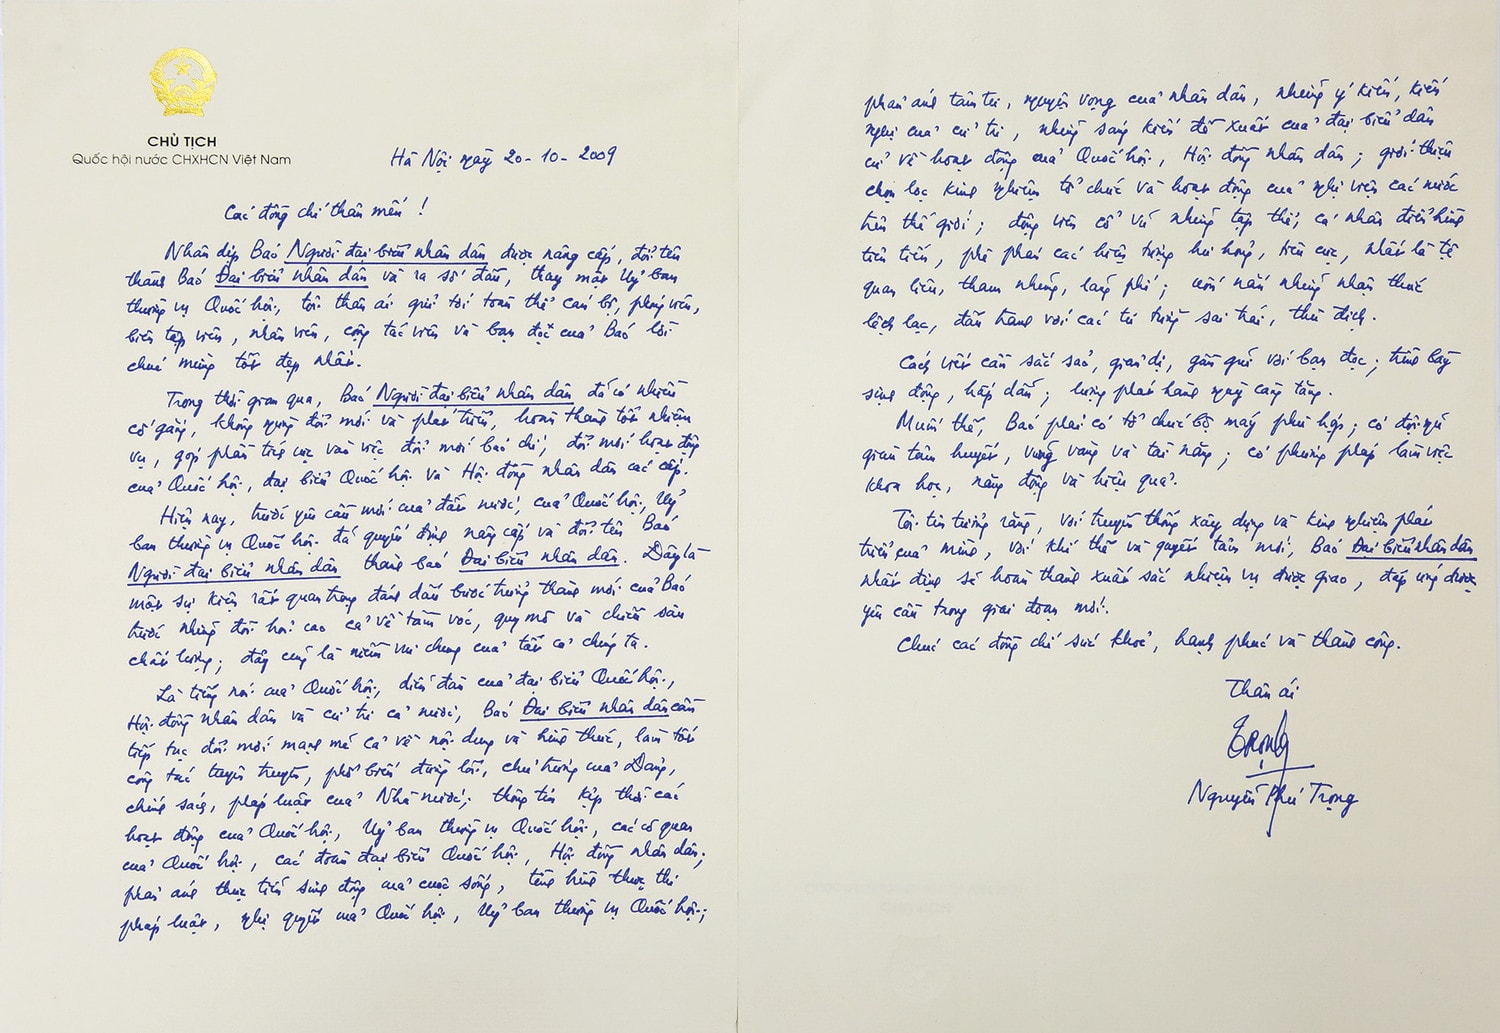 CHỦ TỊCH
Quốc hội nước CHXHCN Việt Nam
Hà Nội ngày 20-10-2009
Các đồng chí thân mến !
Nhân dịp Báo Người đại biểu nhân dân được nâng cấp, đổi tên
thành Báo Đại biểu nhân dân và ra số đầu, thay mặt Uỷ ban
thường vụ Quốc hội, tôi thân ái gửi tới toàn thể cán bộ, phóng viên,
biên tập viên, nhân viên, cộng tác viên và bạn đọc của Báo lời
chúc mừng tốt đẹp nhất.
Trong thời gian qua, Báo Người đại biểu nhân dân đã có nhiều
cố gắng, không ngừng đổi mới và phát triển, hoàn thành tốt nhiệm
vụ, góp phần tích cực vào việc đổi mới báo chí, đổi mới hoạt động
của Quốc hội, đại biểu Quốc hội và Hội đồng nhân dân các cấp.
Hiện nay, trước yêu cầu mới của đất nước, của Quốc hội, Uỷ
ban thường vụ Quốc hội đã quyết định nâng cấp và đổi tên Báo
Người đại biểu nhân dân thành báo Đại biểu nhân dân. Đây là
một sự kiện rất quan trọng đánh dấu bước trưởng thành mới của Báo
trước những đòi hỏi cao cả về tầm vóc, quy mô và chiều sâu
chất lượng; đây cũng là niềm vui chung của tất cả chúng ta.
Là tiếng nói của Quốc hội, diễn đàn của đại biểu Quốc hội,
Hội đồng nhân dân và cử tri cả nước, Báo Đại biểu nhân dân cần
tiếp tục đổi mới mạnh mẽ cả về nội dung và hình thức, làm tốt
công tác tuyên truyền, phổ biến đường lối, chủ trương của Đảng,
chính sách, pháp luật của Nhà nước; thông tin kịp thời các
hoạt động của Quốc hội, Uỷ ban thường vụ Quốc hội, các cơ quan
của Quốc hội, các đoàn đại biểu Quốc hội, Hội đồng nhân dân;
phản ánh thực tiễn sinh động của cuộc sống, tình hình thực thi
pháp luật, nghị quyết của Quốc hội, Uỷ ban thường vụ Quốc hội;
phản ánh tâm tư, nguyện vọng của nhân dân, những ý kiến, kiến
nghị của cử tri, những sáng kiến đề xuất của đại biểu dân
cử về hoạt động của Quốc hội, Hội đồng nhân dân; giới thiệu
chọn lọc kinh nghiệm tổ chức và hoạt động của nghị viện các nước
trên thế giới; động viên cổ vũ những tập thể, cá nhân điển hình
tiên tiến, phê phán các hiện tượng hư hỏng, tiêu cực, nhất là tệ
quan liêu, tham nhũng, lãng phí; uốn nắn những nhận thức
lệch lạc, đấu tranh với các tư tưởng sai trái, thù địch.
Cách viết cần sắc sảo, giản dị, gần gũi với bạn đọc; trình bày
sinh động, hấp dẫn; lượng phát hành ngày càng tăng.
Muốn thế, Báo phải có tổ chức bộ máy phù hợp; có đội ngũ
giàu tâm huyết, vững vàng và tài năng; có phương pháp làm việc
khoa học, năng động và hiệu quả.
Tôi tin tưởng rằng, với truyền thống xây dựng và kinh nghiệm phát
triển của mình, với khí thế và quyết tâm mới, Báo Đại biểu nhân dân
nhất định sẽ hoàn thành xuất sắc nhiệm vụ được giao, đáp ứng được
yêu cầu trong giai đoạn mới.
Chúc các đồng chí sức khoẻ, hạnh phúc và thành công.
Thân ái
Trọng
Nguyễn Phú Trọng